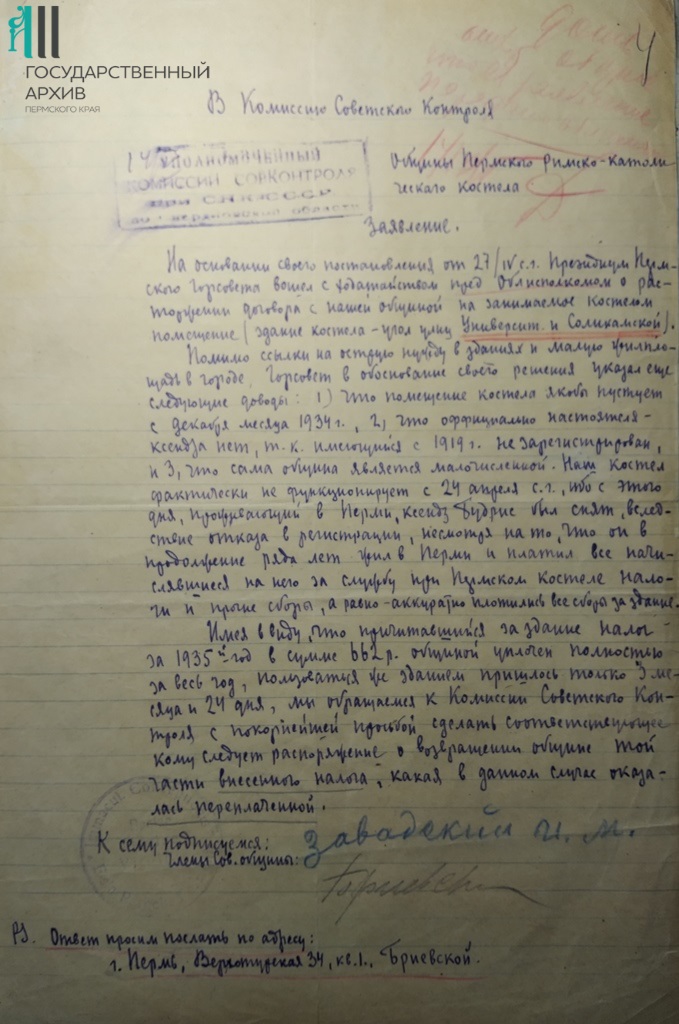 ГОСУДАРСТВЕННЫЙ
АРХИВ
ПЕРМСКОГО КРАЯ
4
В Комиссию Советского Контроля
УПОЛНОМОЧЕННЫЙ
КОМИССИИ СОВКОНТРОЛЯ
при С.Н.К. С.С.С.Р.
по Свердловской области
Общины Пермского Римско-католи
ческого костела
Заявление.
На основании своего постановления от 27/IV с.г. Президиум Перм-
ского Горсовета вошел с ходатайством пред Облисполкомом о рас-
торжении договора с нашей общиной на занимаемое костелом
помещение (здание костела - угол улиц Университ. и Соликамской).
Помимо ссылки на острую нужду в зданиях и малую жилпло-
щадь в городе, Горсовет в обоснование своего решения указал еще
следующие доводы: 1) что помещение костела якобы пустует
с декабря месяца 1934 г., 2, что оффициально настоятеля-
ксендза нет, т.к. имеющийся с 1919 г. не зарегистрирован,
и 3, что сама община является малочисленной. Наш костел
фактически не функционирует с 24 апреля с.г., ибо с этого
дня, проживающий в Перми, ксендз Будрис был снят, вслед-
ствие отказа в регистрации, несмотря на то, что он в
продолжение ряда лет жил в Перми и платил все начи-
слявшиеся на него за службу при Пермском костеле нало-
ги и прочие сборы, а равно - аккуратно платились все сборы за здание.
Имея в виду, что причитавшийся за здание налог
за 1935й год в сумме 662 р. общиной уплочен полностью
за весь год, пользоваться же зданием пришлось только 3 ме-
сяца и 24 дня, мы обращаемся к Комиссии Советского Кон-
троля с покорнейшей просьбой сделать соответствующее
кому следует распоряжение о возвращении общине той
части внесенного налога, какая в данном случае оказа-
лась переплаченной.
К сему подписуемся:
Члены Сов. общины:
Завадский И. М.
PS. Ответ просим послать по адресу:
г. Пермь, Верхотурская 34, кв. 1., Бриевской.